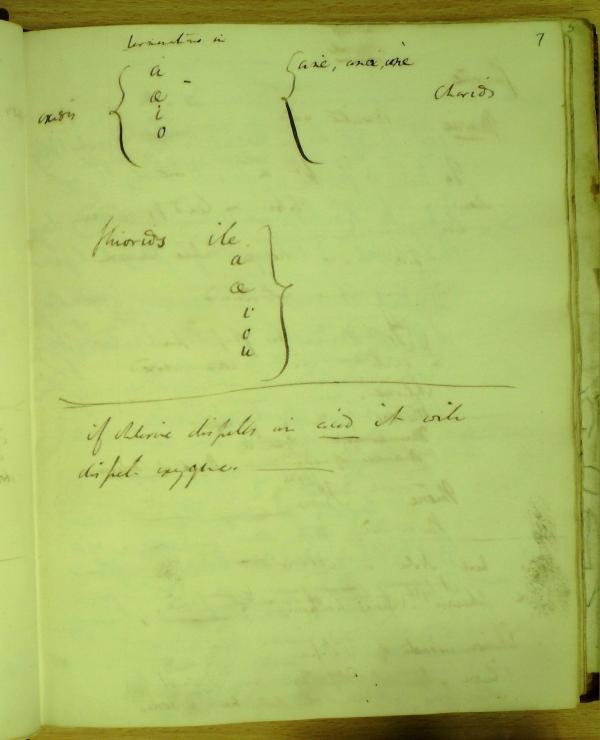 7
terminating in
oxides { a
æ
i
o
{ ane, ana, ane
Chlorids
fluorids ile
a
æ
i
o
u }
if chlorine dispels in acid it will
dispel oxygene.